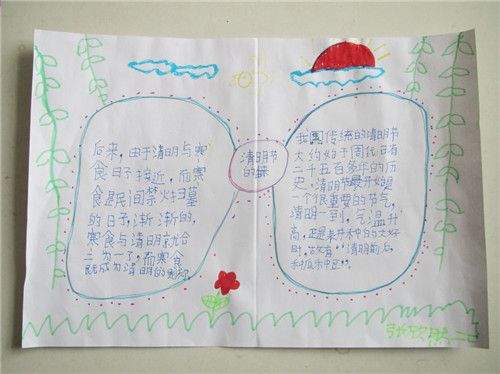 后来,由于清明与寒
食日子接近,而寒
食是民间禁火扫墓
的日子,渐渐的,
寒食与清明就合
二为一了,而寒食
既成为清明的别称
清明节
的
我国传统的清明节
大约始于周代已有
二千五百多年的历
史,清明节最开始是
一个很重要的节气,
清明一到,气温升
高,正是春耕种的大好
时,故有"清明前后
种瓜种豆"。
张欣